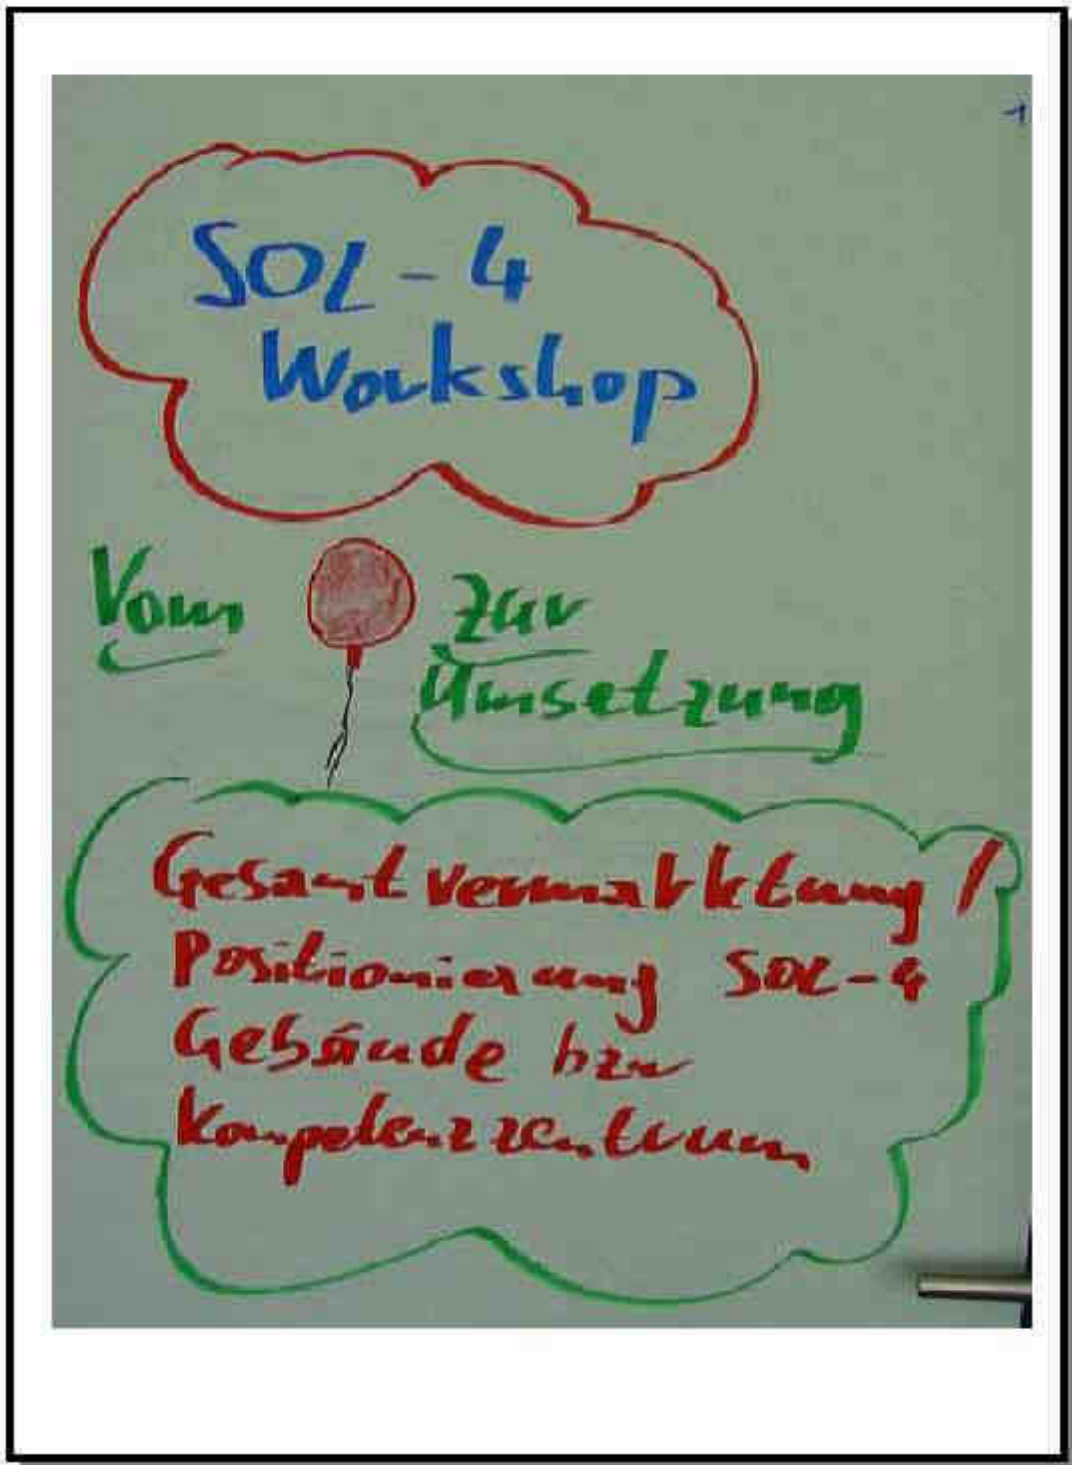 1
SOL - 4
Workshop
Vom zur
Umsetzung
Gesamtvermarktung /
Positionierung SOL-4
Gebäude bzw
Kompetenzzentrum